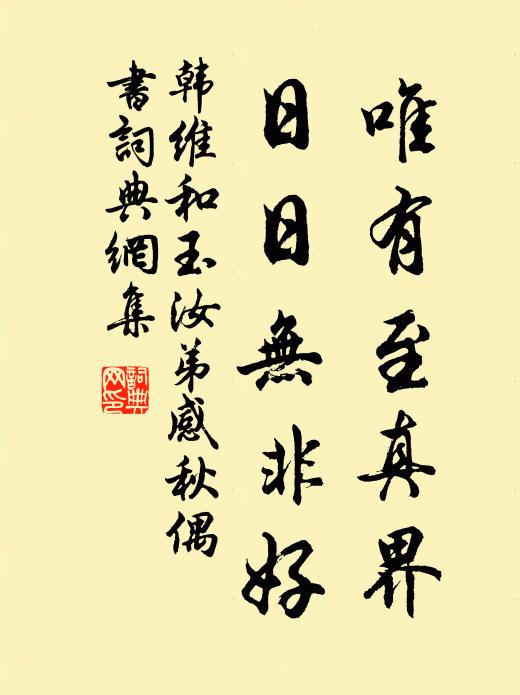 唯有至真界
日日無非好
韩維和玉汝弟感秋偶
書詞典網集
詞典网印